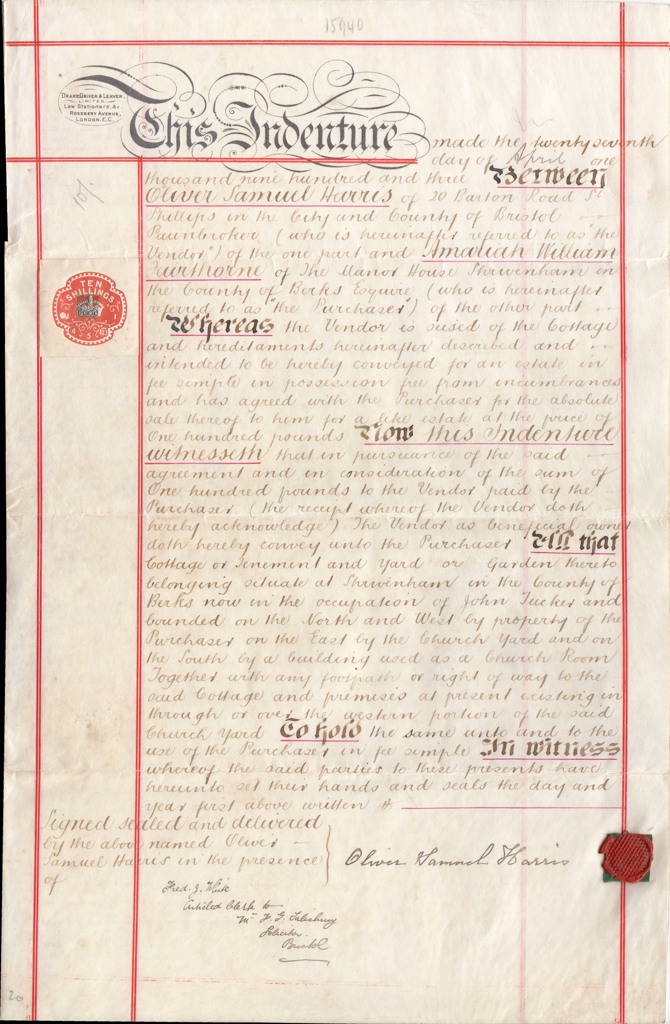 15940
DRAKE DRIVER & LEAVER,
LIMITED,
Law Stationers, &c
ROSEBERY AVENUE,
LONDON, E.C.
This Indenture made the twenty seventh
day of April one
10/.
thousand nine hundred and three Between
Oliver Samuel Harris of 20 Barton Road St
Phillips in the City and County of Bristol
Pawnbroker (who is hereinafter referred to as "the
Vendor") of the one part and Amariah William
Hawthorne of The Manor House Shrivenham in
the County of Berks Esquire (who is hereinafter
referred to as "the Purchaser") of the other part
TEN
SHILLINGS
Whereas the Vendor is seised of the Cottage
and hereditaments hereinafter described and
intended to be hereby conveyed for an estate in
fee simple in possession free from incumbrances
and has agreed with the Purchaser for the absolute
sale thereof to him for a like estate at the price of
One hundred pounds Now this Indenture
witnesseth that in pursuance of the said
agreement and in consideration of the sum of
One hundred pounds to the Vendor paid by the
Purchaser (the receipt whereof the Vendor doth
hereby acknowledge) The Vendor as beneficial owner
doth hereby convey unto the Purchaser All that
Cottage or Tenement and Yard or Garden thereto
belonging situate at Shrivenham in the County of
Berks now in the occupation of John Tucker and
bounded on the North and West by property of the
Purchaser on the East by the Church Yard and on
the South by a building used as a Church Room
Together with any footpath or right of way to the
said Cottage and premises at present existing in
through or over the western portion of the said
Church Yard To hold the same unto and to the
use of the Purchaser in fee simple In witness
whereof the said parties to these presents have
hereunto set their hands and seals the day and
year first above written
Signed sealed and delivered
by the above named Oliver
Samuel Harris in the presence
of
Oliver Samuel Harris
Fred. J. White
Articled Clerk to
Mr F. G.
Solicitor
Bristol
20